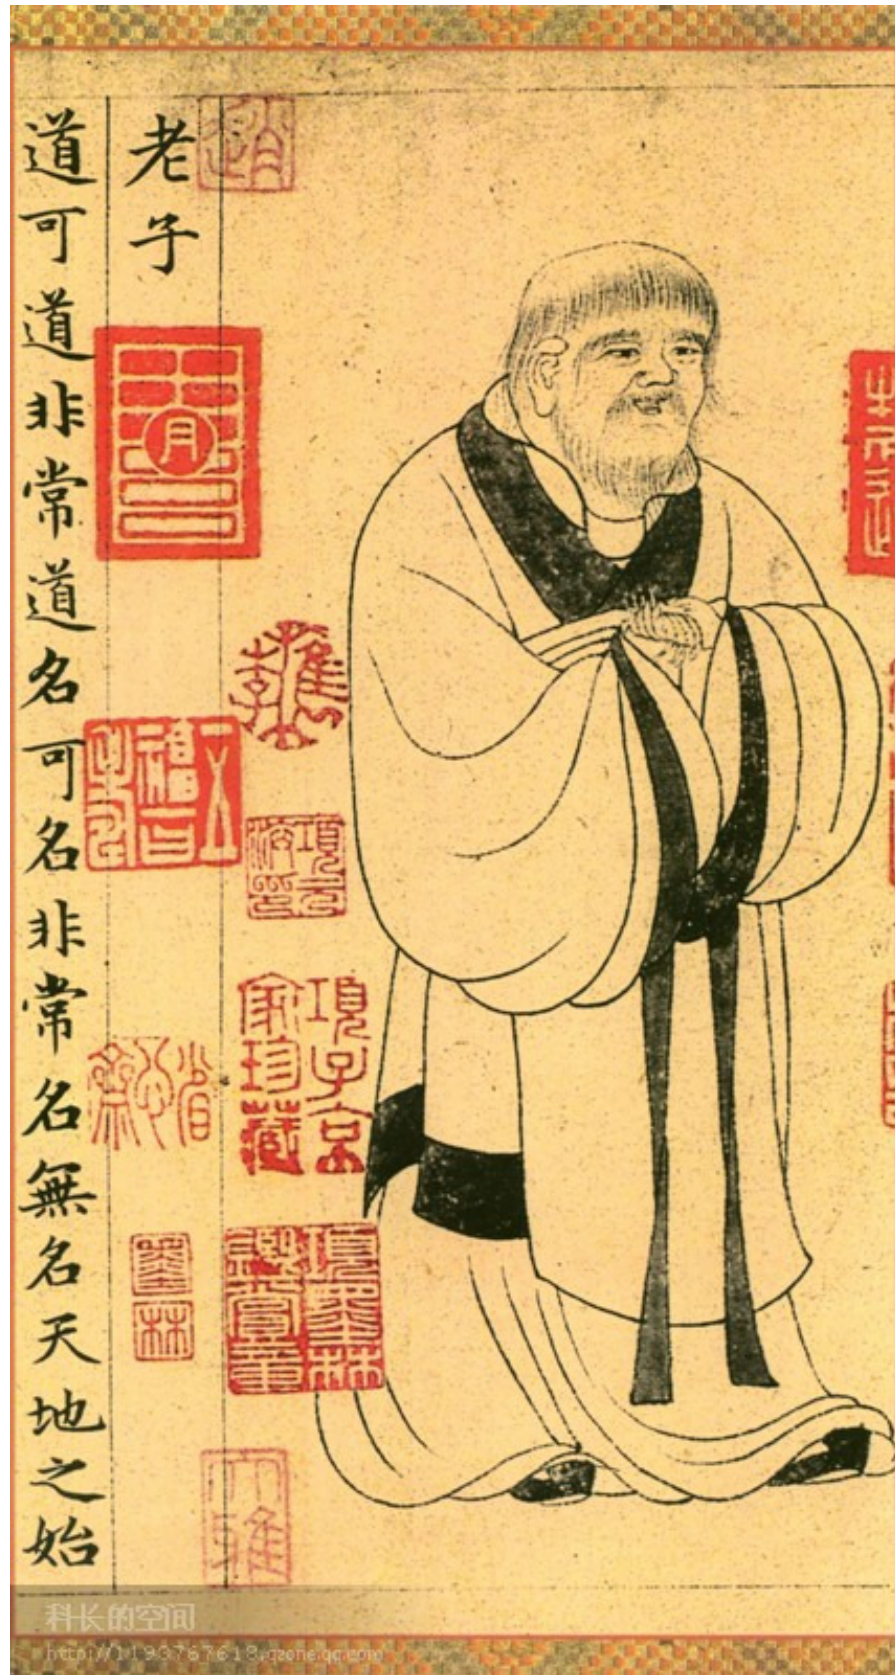 老子
道可道非常道名可名非常名無名天地之始
項元汴印
項子京家珍藏
墨林
項墨林鑑賞章
大雅
科长的空间
http://1193767618.qzone.qq.com